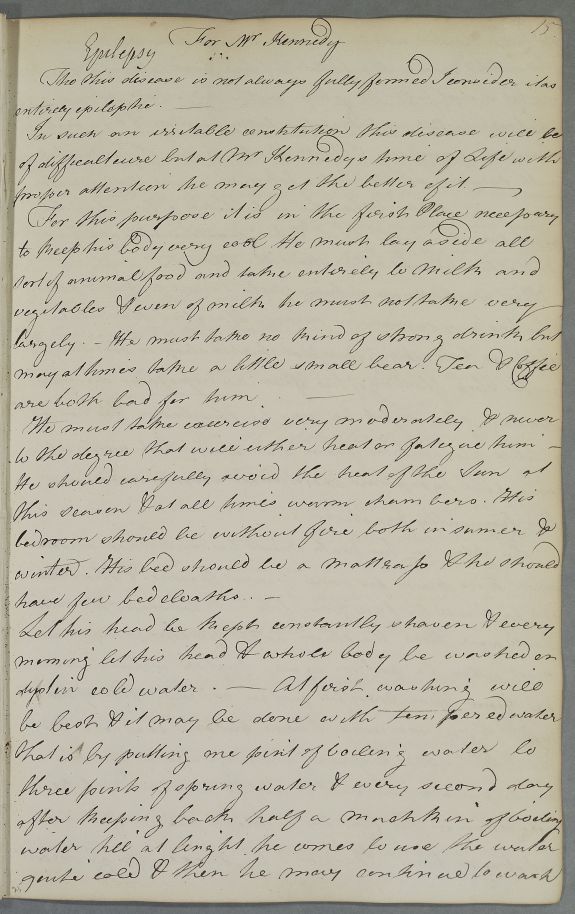 15
For Mr Kennedy
Epilepsy
Tho this disease is not always fully formed I consider it as
entirely epileptic. —
In such an irritable constitution this disease will be
of difficult cure but at Mr Kennedys time of Life with
proper attention he may get the better of it. —
For this purpose it is in the first Place necessary
to keep his body very cool He must lay aside all
sort of animal food and take entirely to Milk and
vegetables & even of milk he must not take very
largely. - He must take no kind of strong drink but
may at times take a little small bear. Tea & Coffee
are both bad for him —
He must take exercise very moderately & never
to the degree that will either heat or fatigue him -
He should carefully avoid the heat of the Sun at
this season & at all times warm chambers. His
bedroom should be without fire both in sumer &
winter. His bed should be a mattrass & he should
have few bedcloaths. -
Let his head be kept constantly shaven & every
morning let his head & whole body be washed or
dipt in cold water. — At first washing will
be best & it may be done with tempered water
that is by putting one pint of boiling water to
three pints of spring water & every second day
after keeping back half a mutchkin of boiling
water till at lenght he comes to use the water
quite cold & then he may continue to wash